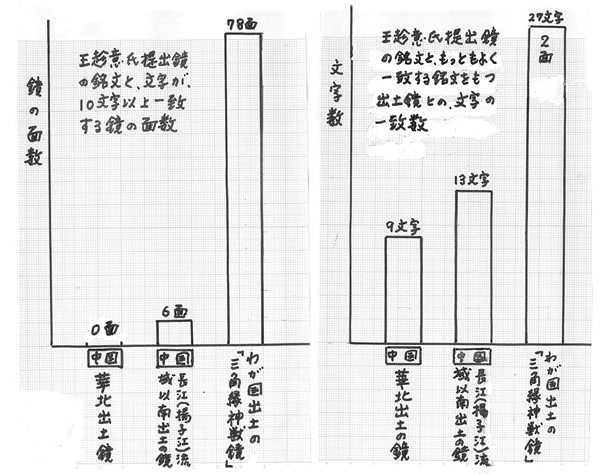 鏡の面数
王趁意氏提出鏡
の銘文と、文字が、
10文字以上一致
する鏡の面数
78面
6面
0面
中国
華北出土鏡
中国
長江(揚子江)流
域以南出土の鏡
わが国出土の
「三角縁神獣鏡」
文字数
王趁意氏提出鏡
の銘文と、もっともよく
一致する銘文をもつ
出土鏡との、文字の
一致数
27文字
2
面
13文字
9文字
中国
華北出土の鏡
中国
長江(揚子江)流
域以南出土の鏡
わが国出土の
「三角縁神獣鏡」